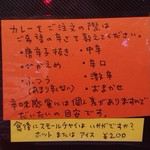 カレーをご注文の際は
ご希望の辛さを教えてください。
・唐辛子抜き ・中辛
・ひかえめ ・辛口
・ふつう ・激辛
(あまり辛くない) ・おまかせ
辛味感覚には個人差がありますので
だいたいの目安です。
食後にスモールチャイはいかがですか?
ホット または アイス ¥200